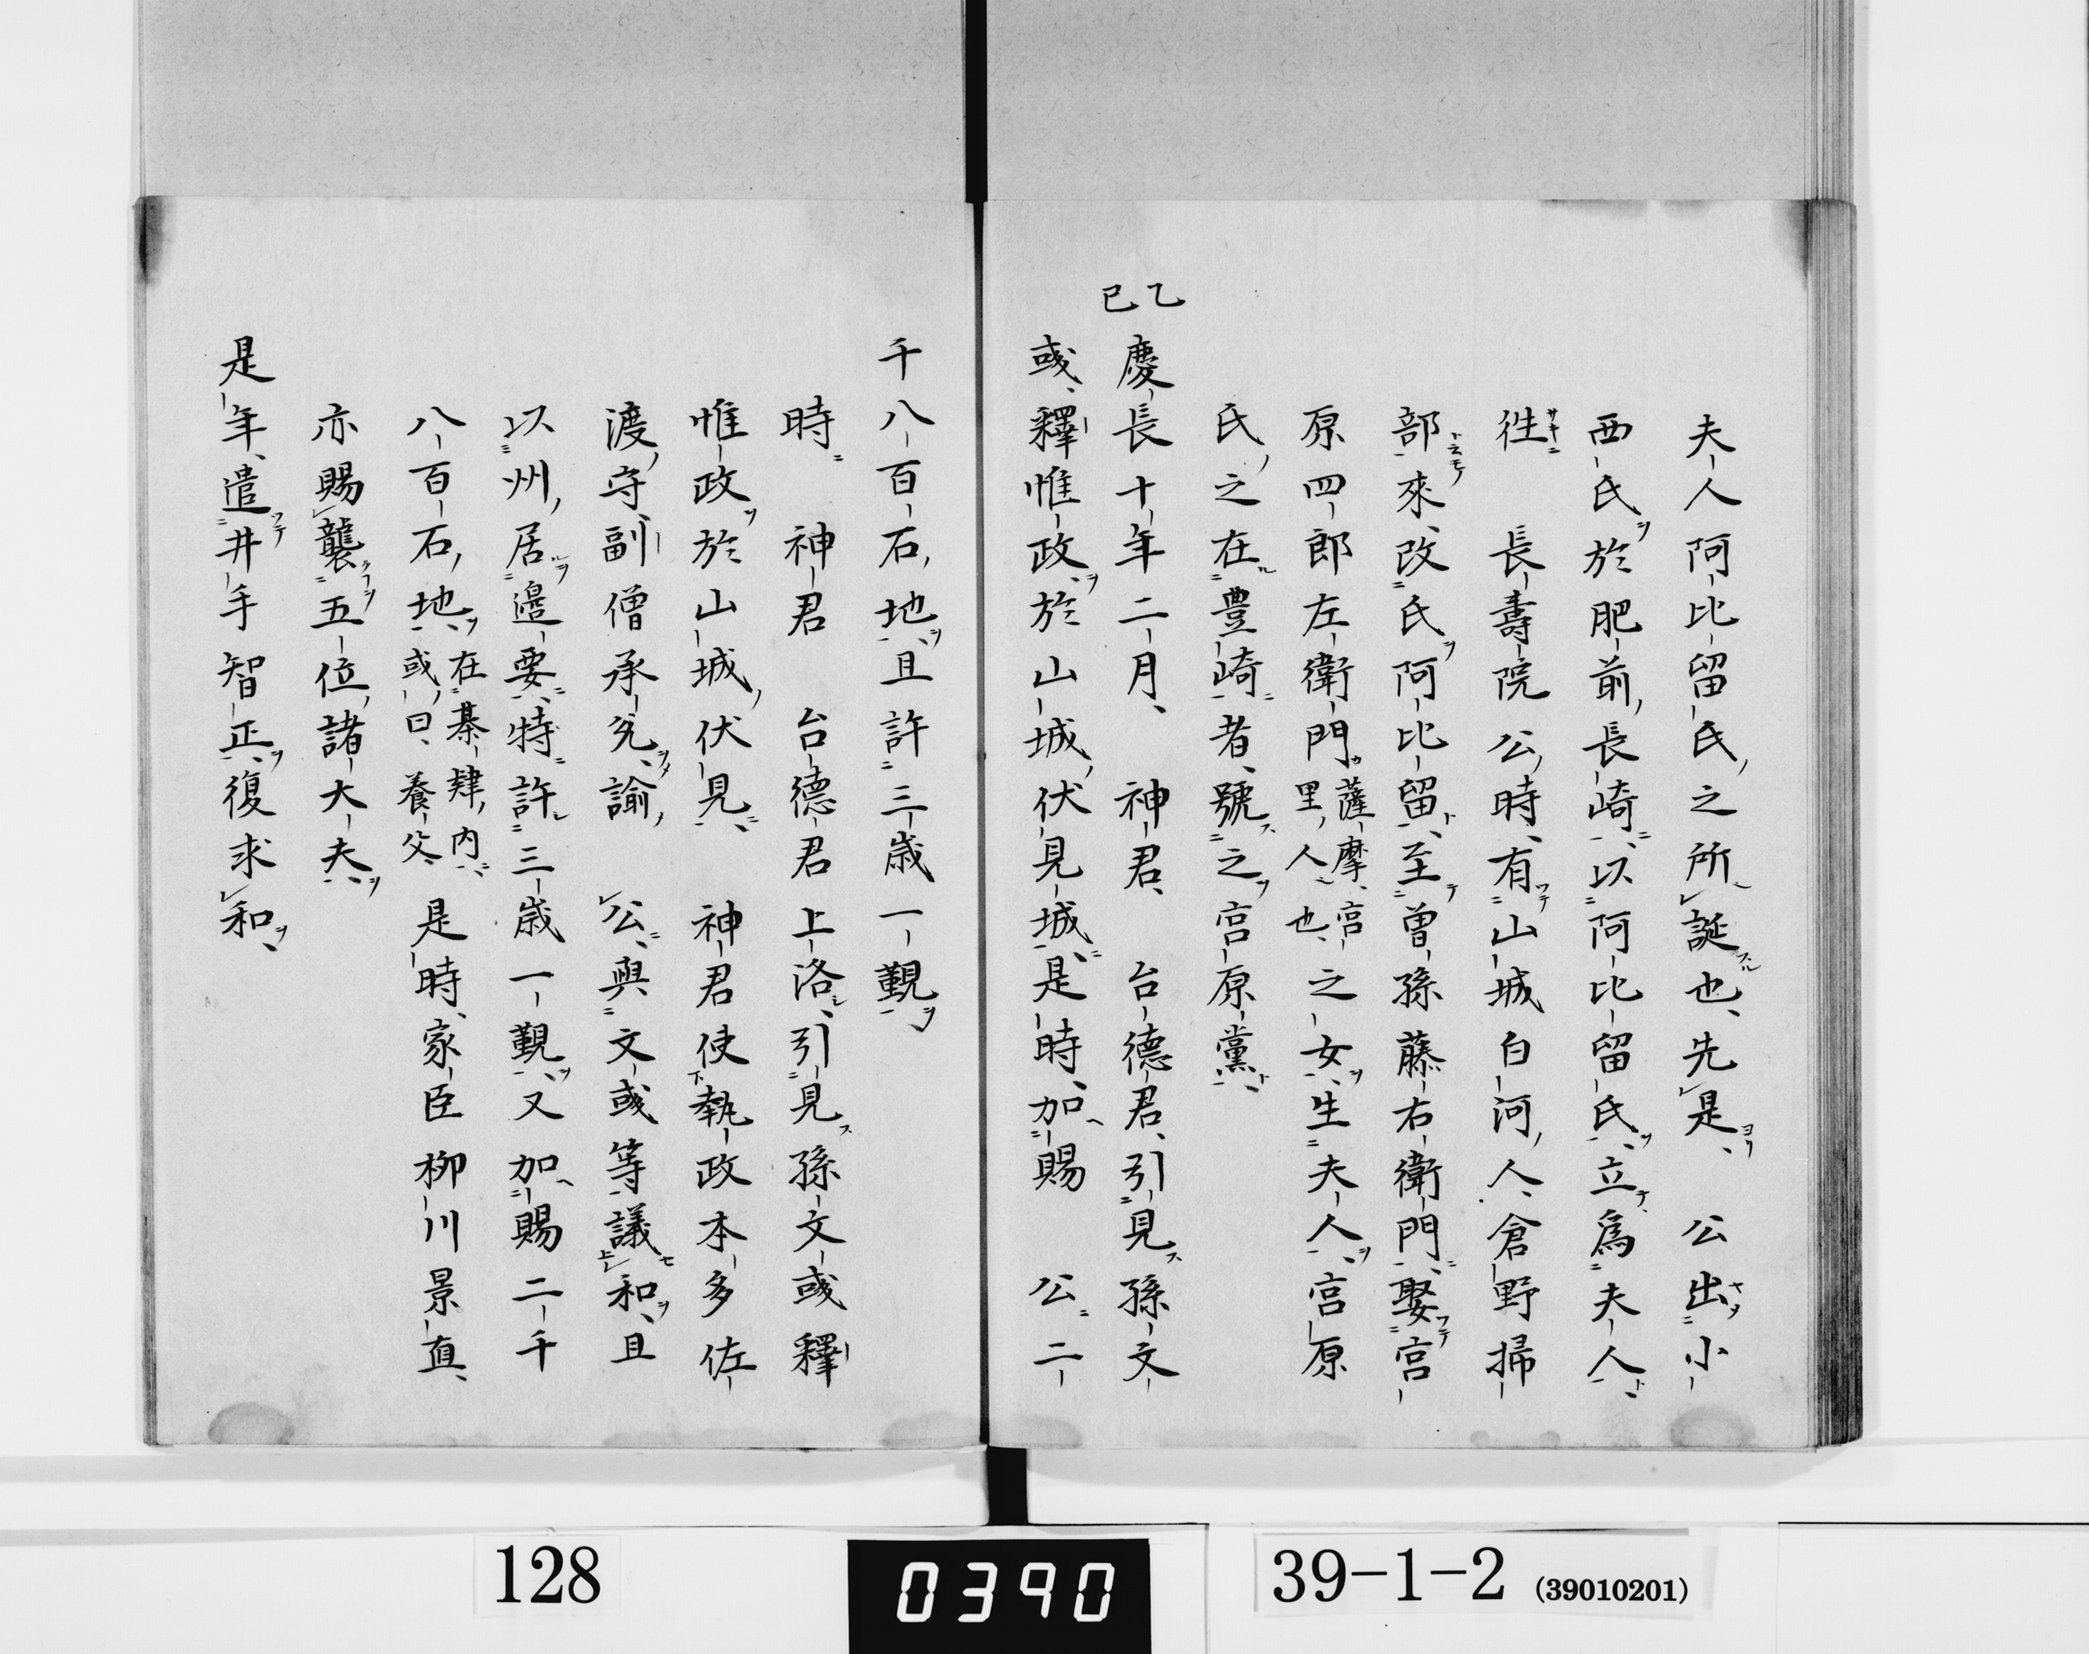 夫人阿比留氏之所誕也先是 公出小
西氏於肥前長崎以阿比留氏立爲夫人
徃 長壽院公時有山城白河人倉野掃
部來改氏阿比留至曽孫藤右衛門娶宮
原四郎左衛門薩摩宮里人也之女生夫人宮原
氏之在豊崎者號之宮原黨
乙巳
慶長十年二月 神君 台德君引見孫文
彧釋惟政於山城伏見城是時加賜 公二
千八百石地且許三歳一覲
時 神君 台德君上洛引見孫文彧釋
惟政於山城伏見 神君使執政本多佐
渡守副僧承兌諭 公與文彧等議和且
以州居邉要特許三歳一覲又加賜二千
八百石地在基肄内或曰養父是時家臣柳川景直
亦賜襲五位諸大夫
是年遣井手智正復求和
128
0390
39-1-2 (39010201)